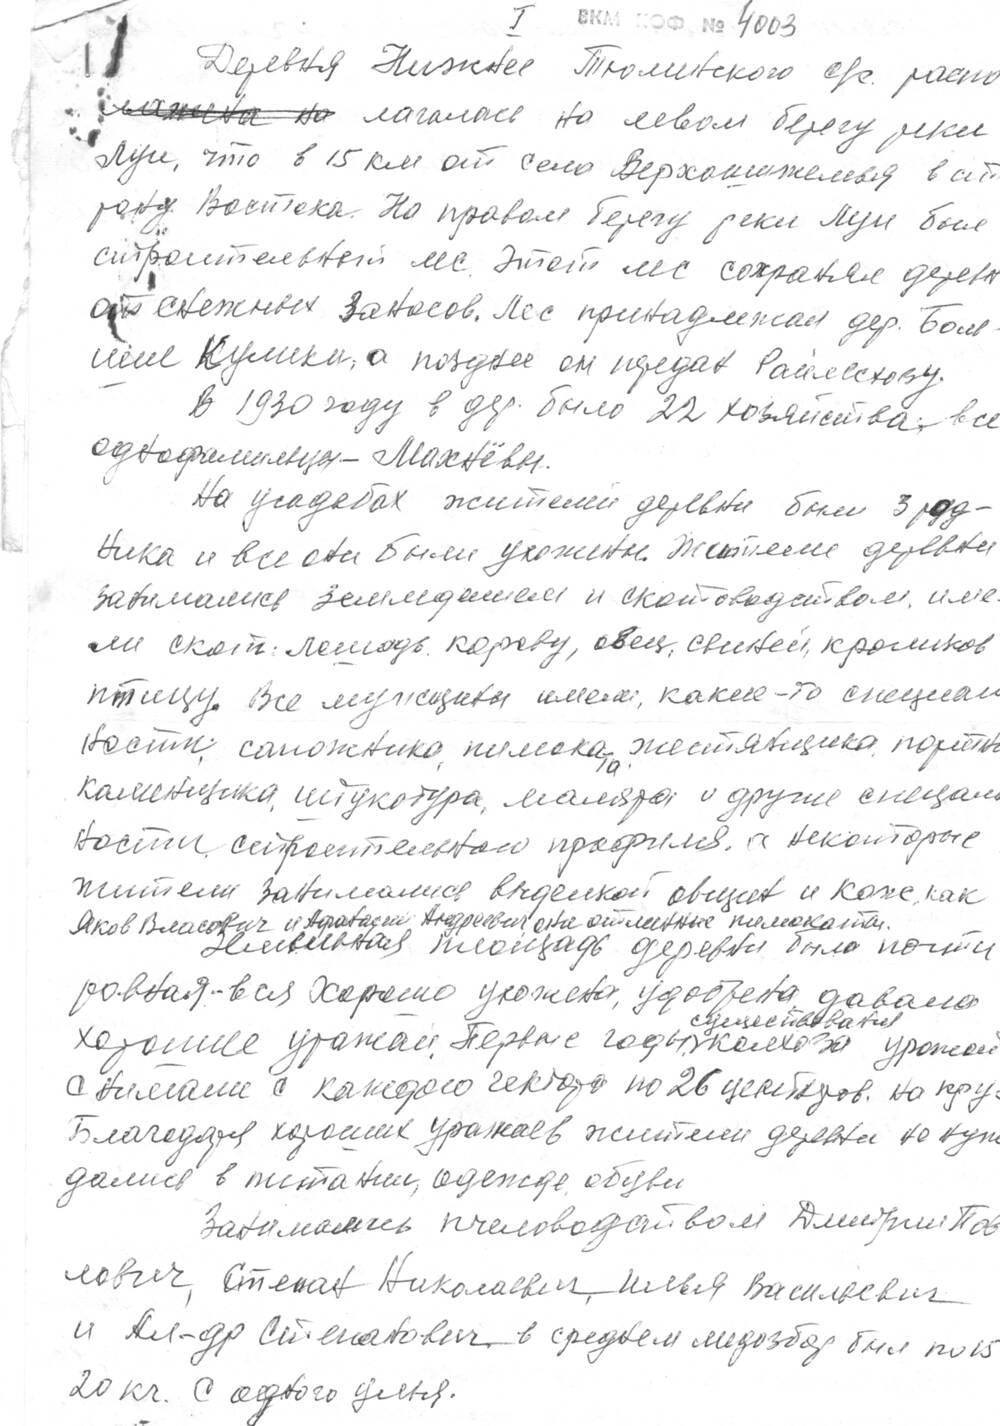 I ВКМ КОФ № 4003
Деревня Нижнее Тюминского с/с. распо
ложена на лагалась на левом берегу реки
Луи, что в 15 км от села Верхошижемья в сто
рону Востока. На правом берегу реки Луи был
строительный лес. Этот лес сохранял деревн
от снежных заносов. Лес принадлежал дер. Боль-
шие Кулики, а позднее он передан Райлесхозу.
В 1930 году в дер. было 22 хозяйства, все
однофамильцы – Махнёвы.
На усадьбах жителей деревни были 3 род-
ника и все они были ухожены. Жители деревни
занимались земледелием и скотоводством, име-
ли скот: лошадь, корову, овец, свиней, кроликов
птицу. Все мужчины имели, какие-то специаль
ности: сапожника, пимоката, жестянщика, портн
каменщика, штукатура, маляра и другие специаль
ности, строительного профиля. а некоторые
жители занимались выделкой овчин и кож, как
Яков Власович и Афанасий Андреевич они отличные пимокаты.
Земельная площадь деревни было почти
ровная – вся хорошо ухожена, удобрена, давала
хорошие урожаи. Первые годы существования колхоза урожай
снимали с каждого гектара по 26 центнеров. на кру-
Благодаря хороших урожаев жители деревни не нуж
дались в питании, одежде, обуви
Занимались пчеловодством Дмитрий Пав
лович, Степан Николаевич, Илья Васильевич
и Ал-др Степанович, в среднем медозбор был по 15
20 кг. с одного улья.